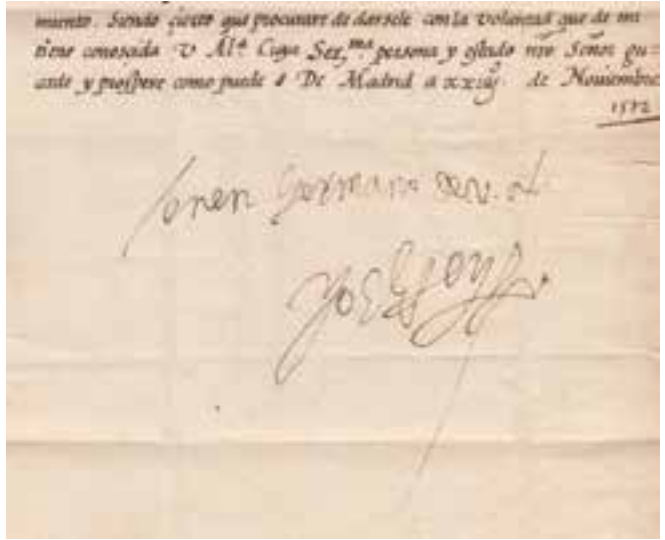 miento. Siendo çierto que procurare de darsele con la voluntad que de mi
tiene conoscida V Al.ª Cuya Ser.ma persona y estado nrõ Señor gu-
arde y prospere como puede De Madrid a xxiiij de Noviembre
1572
buen hermano de v. al
Yo El Rey